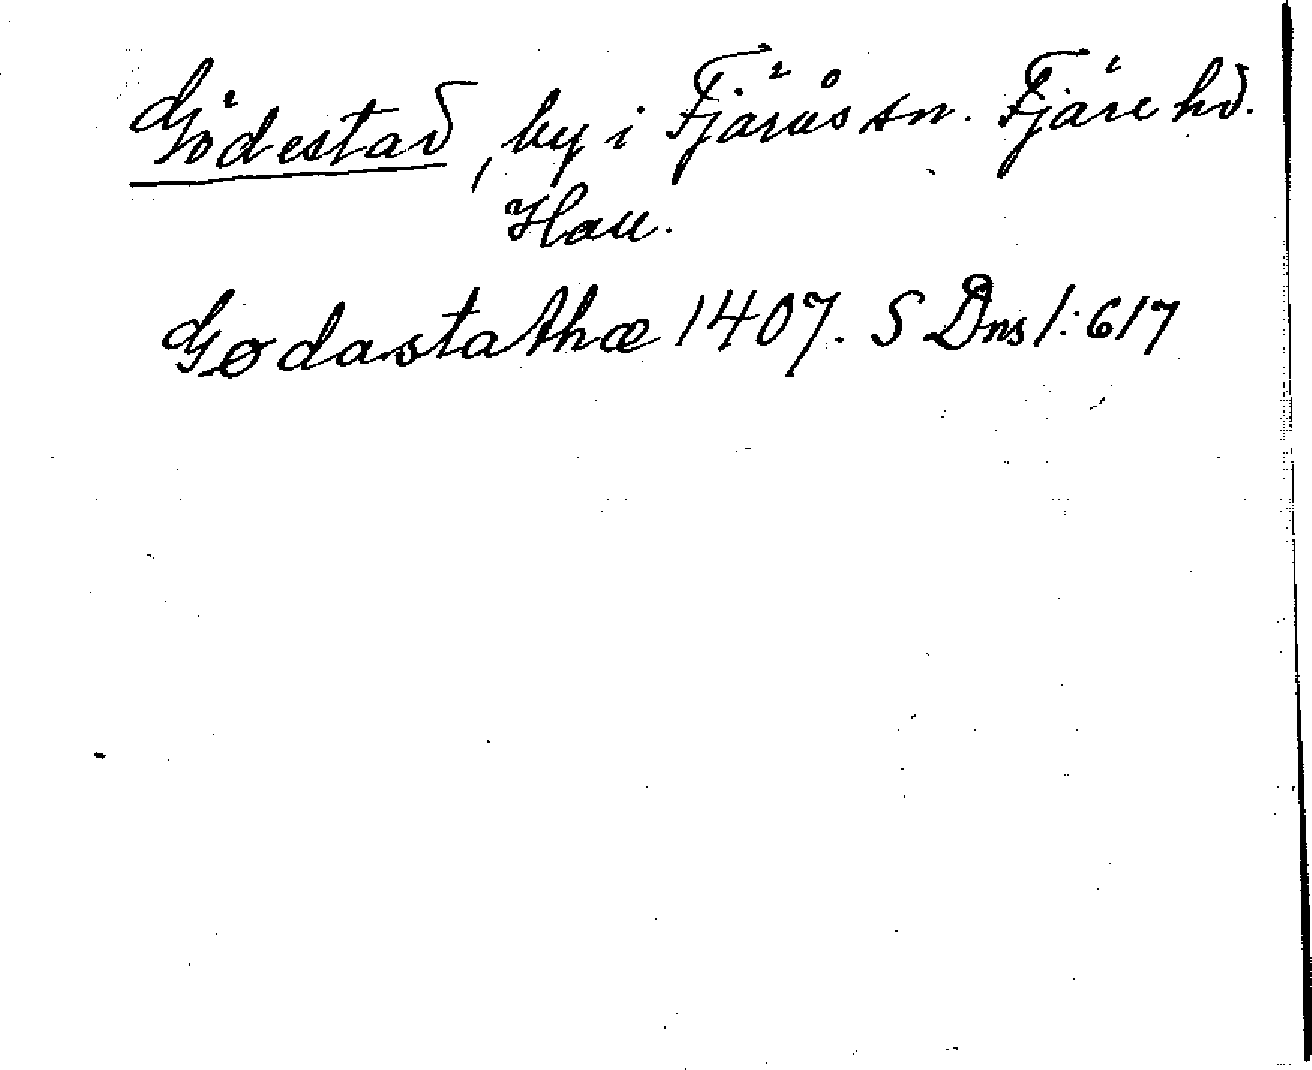 Gödestad, by i Fjärås sn. Fjäre hd.
Hall.
Gødastathæ 1407. S Dns 1:617